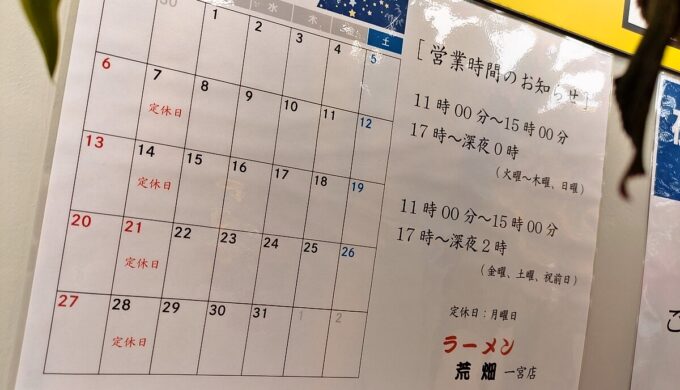 水 木 土
30 1 2 3 4 5
6 7 8 9 10 11 12
定休日
13 14 15 16 17 18 19
定休日
20 21 22 23 24 25 26
定休日
27 28 29 30 31 1 2
定休日
[営業時間のお知らせ]
11時00分～15時00分
17時～深夜0時
(火曜～木曜、日曜)
11時00分～15時00分
17時～深夜2時
(金曜、土曜、祝前日)
定休日：月曜日
ラーメン
荒畑 一宮店